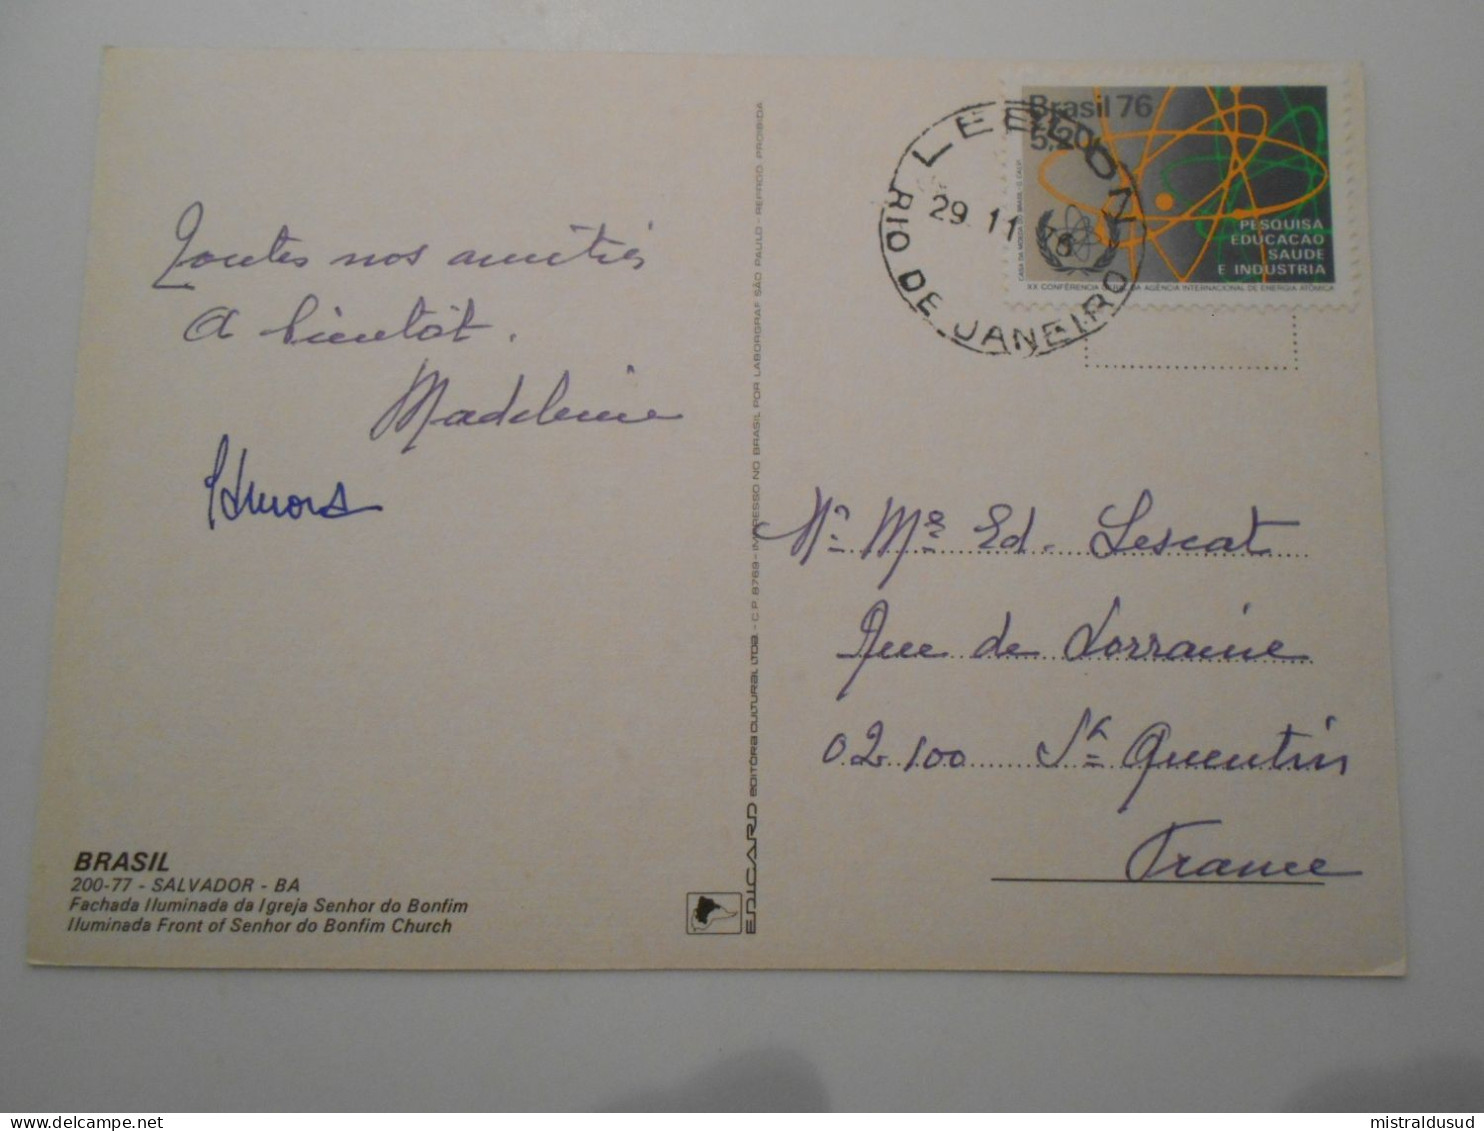 Toutes nos amitiés
A bientôt.
Madeleine
BRASIL
200-77 - SALVADOR - BA
Fachada Iluminada da Igreja Senhor do Bonfim
Iluminada Front of Senhor do Bonfim Church
EDICARD EDITORA CULTURAL LTDA - C.P. 8769 - IMPRESSO NO BRASIL POR LABORGRAF SÃO PAULO - REPROD. PROIBIDA
Brasil 76
5,20
PESQUISA
EDUCACAO
SAUDE
E INDUSTRIA
XX CONFERÊNCIA GERAL DA AGÊNCIA INTERNACIONAL DE ENERGIA ATÔMICA
LEBLON
29 11 76
RIO DE JANEIRO
Mr Me Ed. Lescat
Rue de Lorraine
02100 St Quentin
France
mistraldusud